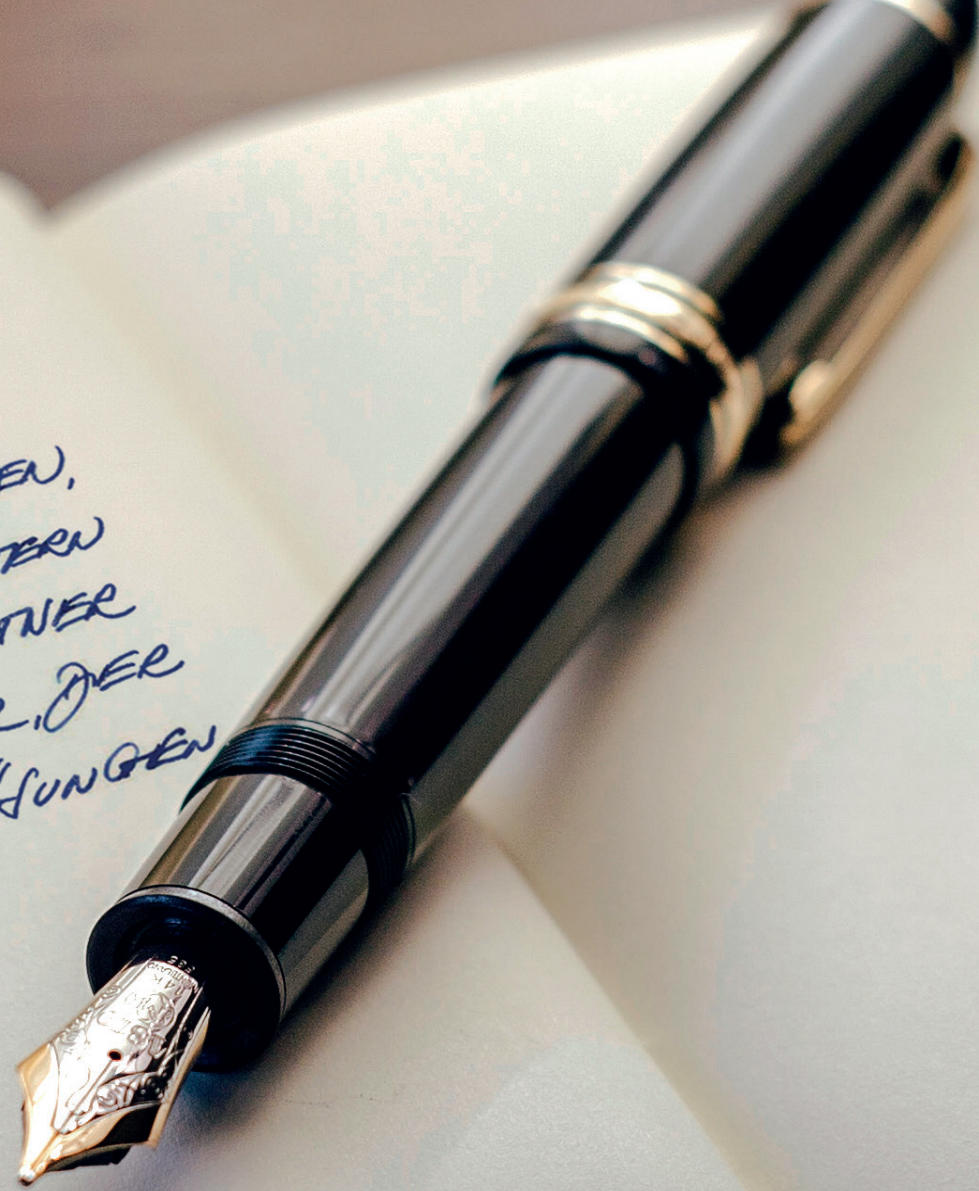 EN,
TERN
TNER
R, DER
HUNGEN
14K
585